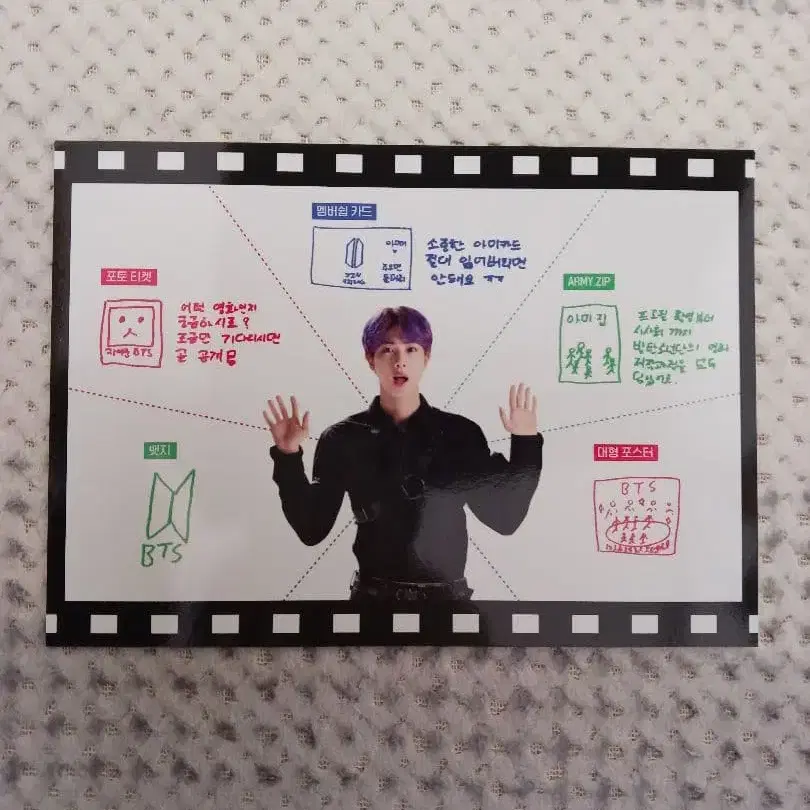 멤버쉽 카드
소중한 아미카드
절대 잃어버리면
안돼요 ㅠㅠ
포토 티켓
BTS
어떤 영화인지
궁금하시죠?
조금만 기다리시면
곧 공개
ARMY.ZIP
아미 집
프로필 촬영부터
시사회 까지
방탄소년단의
모두
담았어요.
뱃지
BTS
대형 포스터
BTS